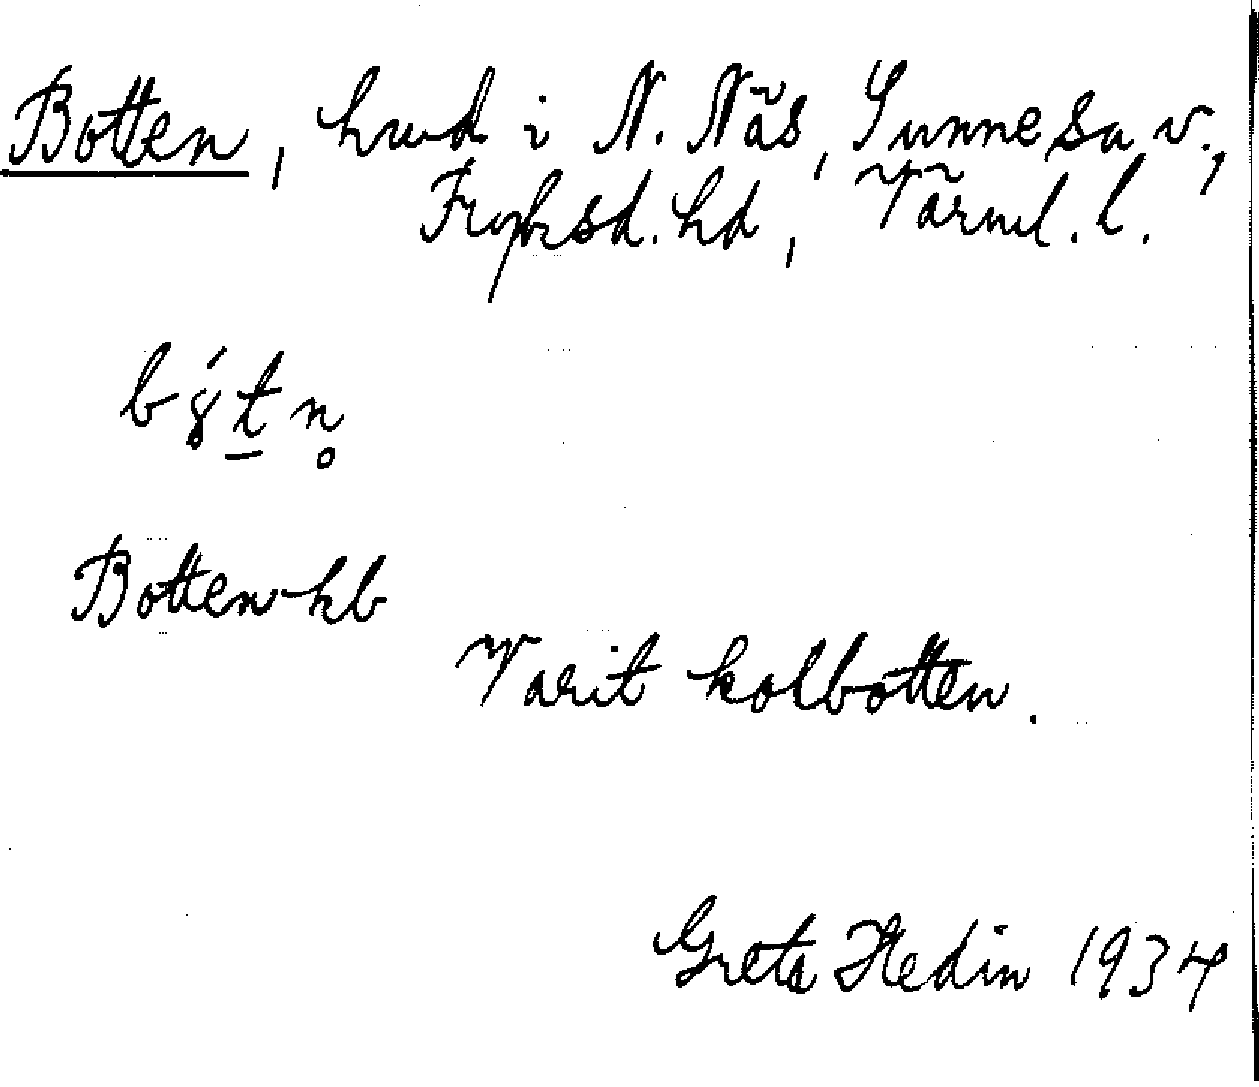 Botten, hwd i N. Näs, Sunne sn v.,
Fryksd. hd, Värml. l.
bý̱tn̥
Botten hb
Varit kolbotten.
Greta Hedin 1934